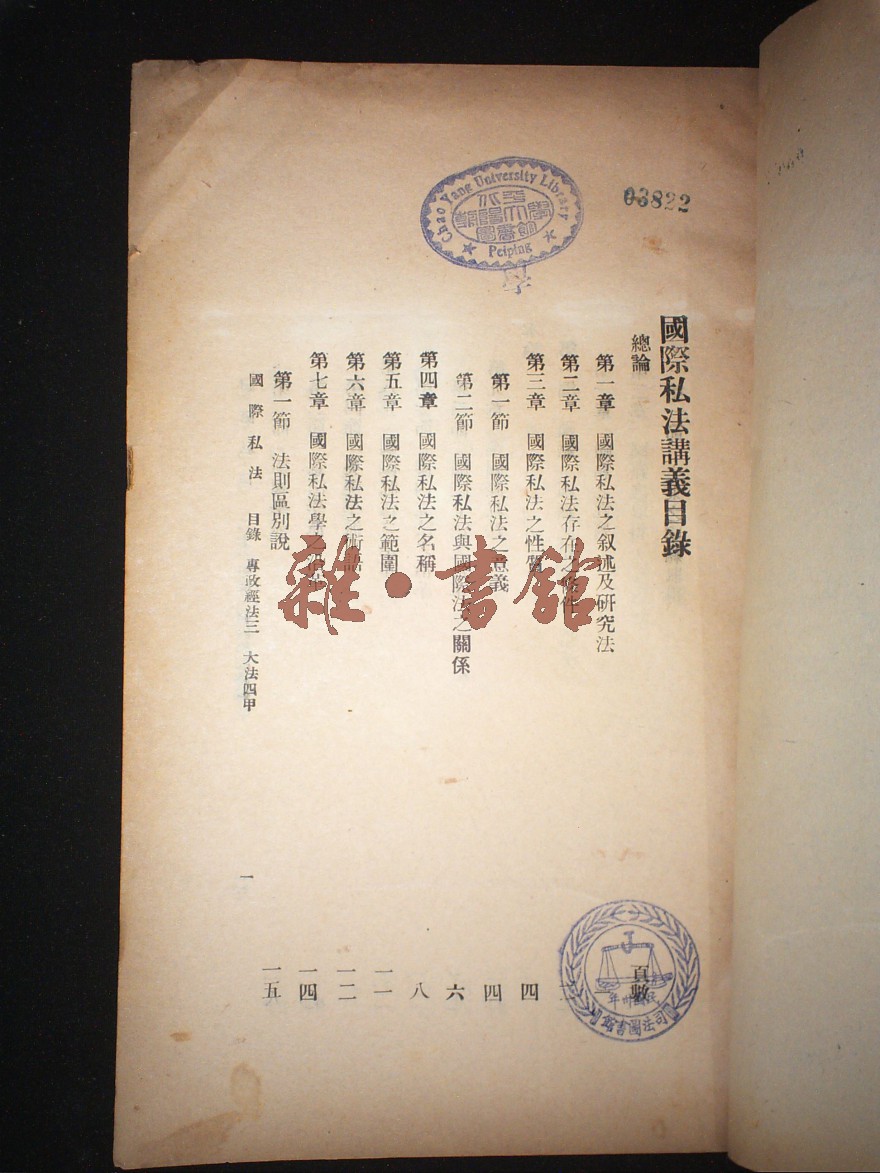 03822
Chao Yang University Library
Peiping
國際私法講義目錄
總論
頁數
第一章 國際私法之叙述及研究法
第二章 國際私法存在之條件 四
第三章 國際私法之性質 四
第一節 國際私法之意義 四
第二節 國際私法與國際法之關係 六
第四章 國際私法之名稱 八
第五章 國際私法之範圍 一一
第六章 國際私法之術語 一二
第七章 國際私法學之沿革 一四
第一節 法則區別說 一五
國際私法 目錄 專政經法三 大法四甲 一
雜·書館